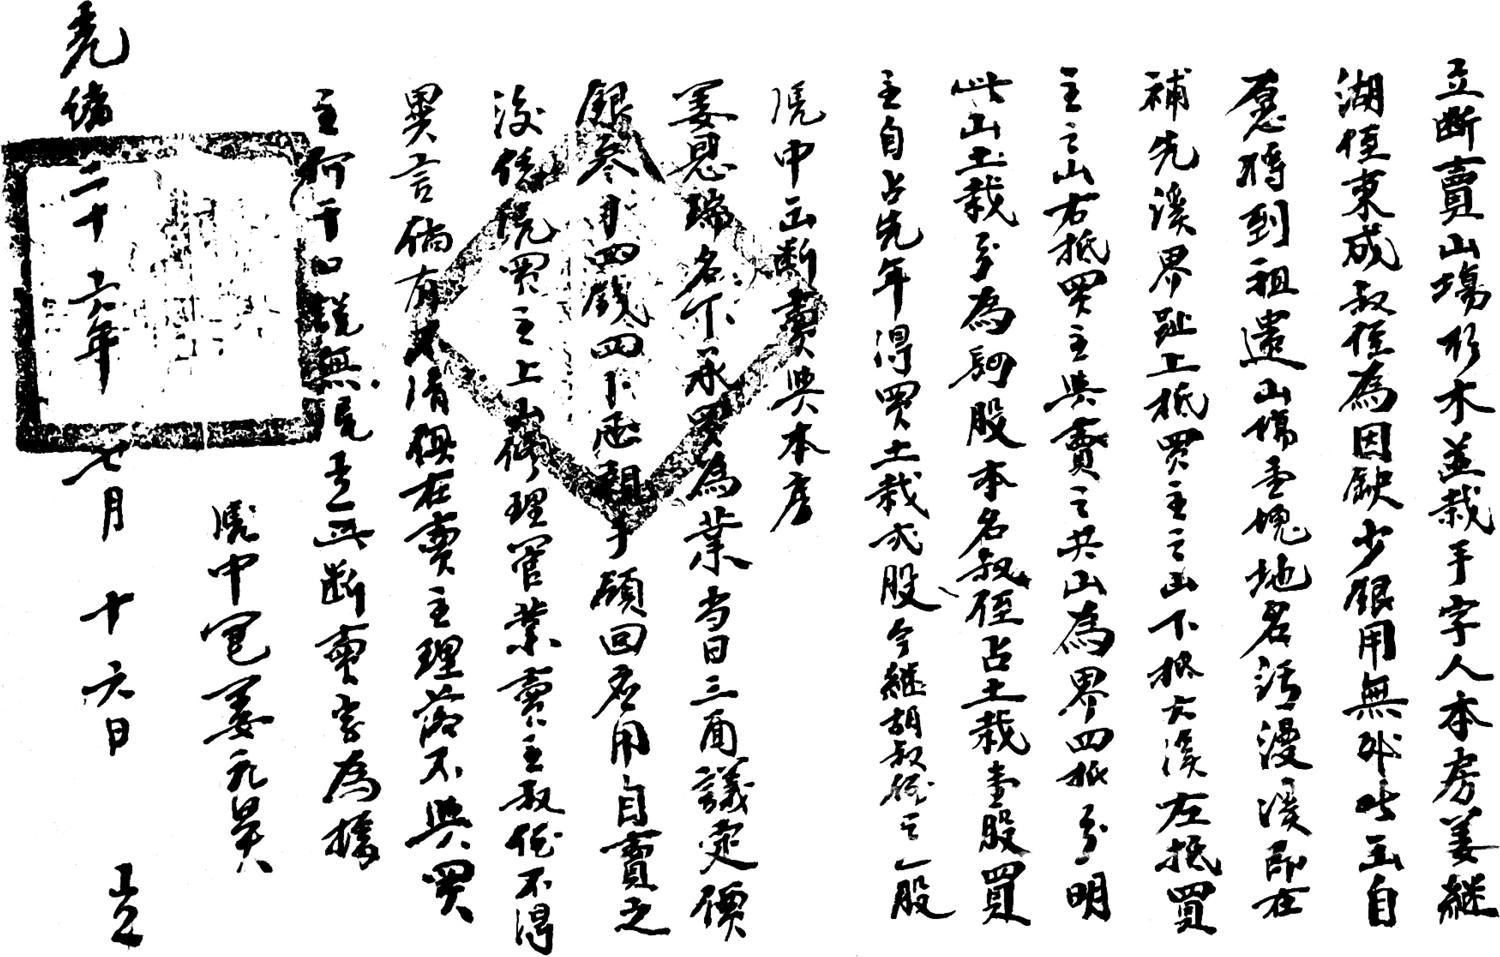 立断賣山塲杉木並栽手字人本房姜継
湖侄東成叔侄為因缺少銀用無出自
愿將到祖遺山塲壹塊地名活漫溪即在
補先溪界趾上抵買主之山下抵大溪左抵買
主之山右抵買主與賣之共山為界四抵分明
此山土栽分為 股本名叔侄占土栽壹股買
主自占先年得買土栽弍股今継胡叔侄之一股
凴中出断賣與本房
姜恩瑞名下承買為業当日三面議定價
銀叁 四錢四卜 親手領回 用自賣之
後任凴買主上山修理管業賣主叔侄不得
異言倘有不清俱在賣主理落不與買
主何干口説無凴立此断賣字為據
凴中 姜元昊
光緒二十六年七月十六日 立